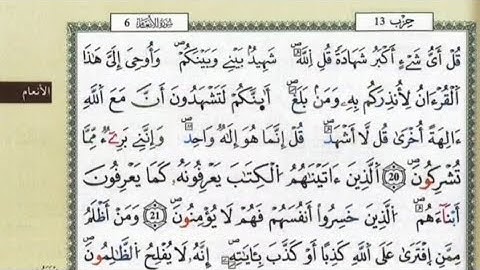 سُورَةُ الأَنْعَام 6
حِزْب 13
الأنعام
قُلْ أَيُّ شَيْءٍ أَكْبَرُ شَهَادَةً قُلِ اِللَّهُ صـ شَهِيدُۢ بَيْنِي وَبَيْنَكُمْ صـ وَأُوحِيَ إِلَيَّ هَٰذَا
اَلْقُرْءَانُ لِأُنذِرَكُم بِهِۦ وَمَنۢ بَلَغَ صـ أَئِنَّكُمْ لَتَشْهَدُونَ أَنَّ مَعَ اَللَّهِ
ءَالِهَةً أُخْرَىٰ قُل لَّا أَشْهَدُ صـ قُلْ إِنَّمَا هُوَ إِلَٰهٌ وَاحِدٌ صـ وَإِنَّنِي بَرِيءٌ مِّمَّا
تُشْرِكُونَ صـ 20 اَلَّذِينَ ءَاتَيْنَٰهُمُ اُلْكِتَٰبَ يَعْرِفُونَهُۥ كَمَا يَعْرِفُونَ
أَبْنَاءَهُمْ صـ اُلَّذِينَ خَسِرُوا أَنفُسَهُمْ فَهُمْ لَا يُؤْمِنُونَ صـ 21 وَمَنْ أَظْلَمُ
مِمَّنِ اِفْتَرَىٰ عَلَى اَللَّهِ كَذِبًا أَوْ كَذَّبَ بِـَٔايَٰتِهِۦ صـ إِنَّهُۥ لَا يُفْلِحُ اُلظَّٰلِمُونَ صـ